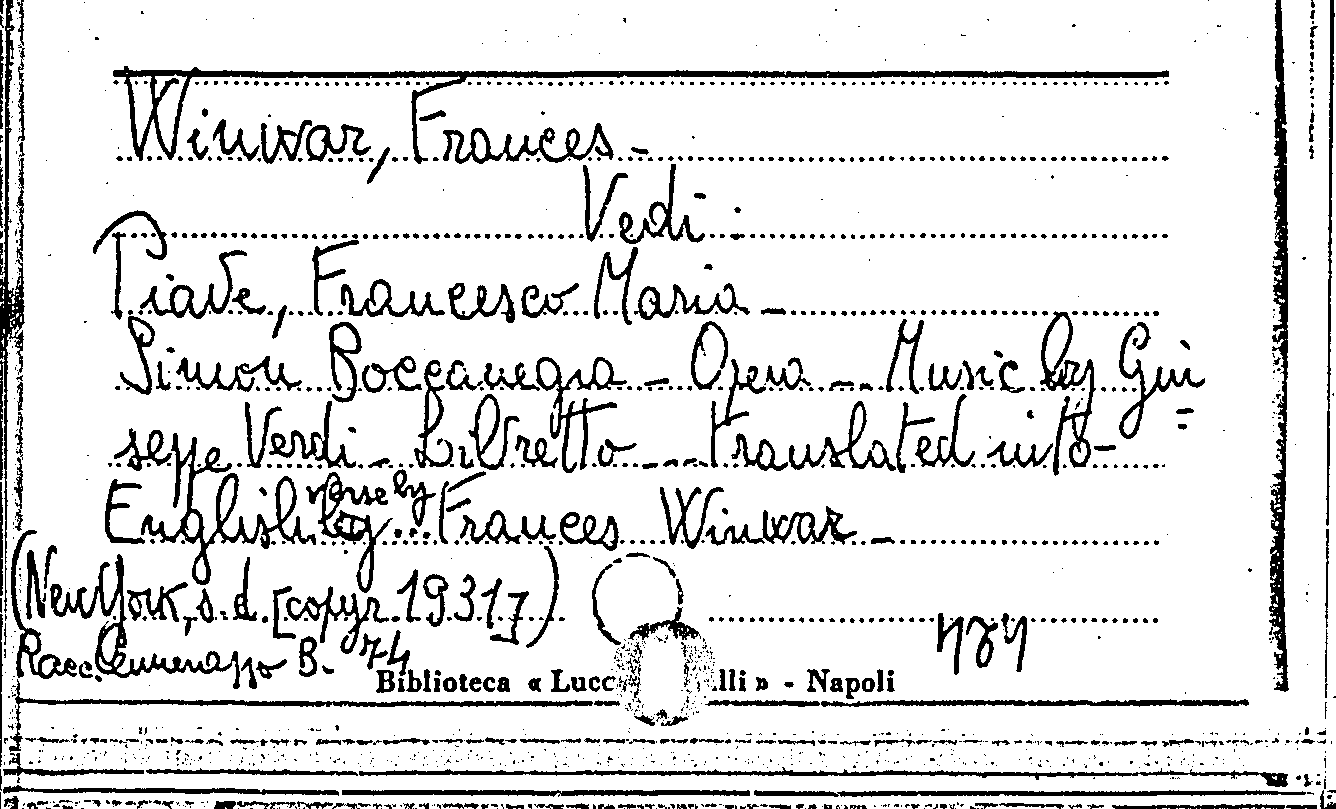 Winwar, Frances -
Vedi:
Piave, Francesco Maria -
Simon Boccanegra - Opera -- Music by Giu=
seppe Verdi - Libretto --- translated into-
English verse by ... Frances Winwar -
(New York, s.d. [copyr. 1931])
Racc. B. 74
Biblioteca « Lucc lli » - Napoli